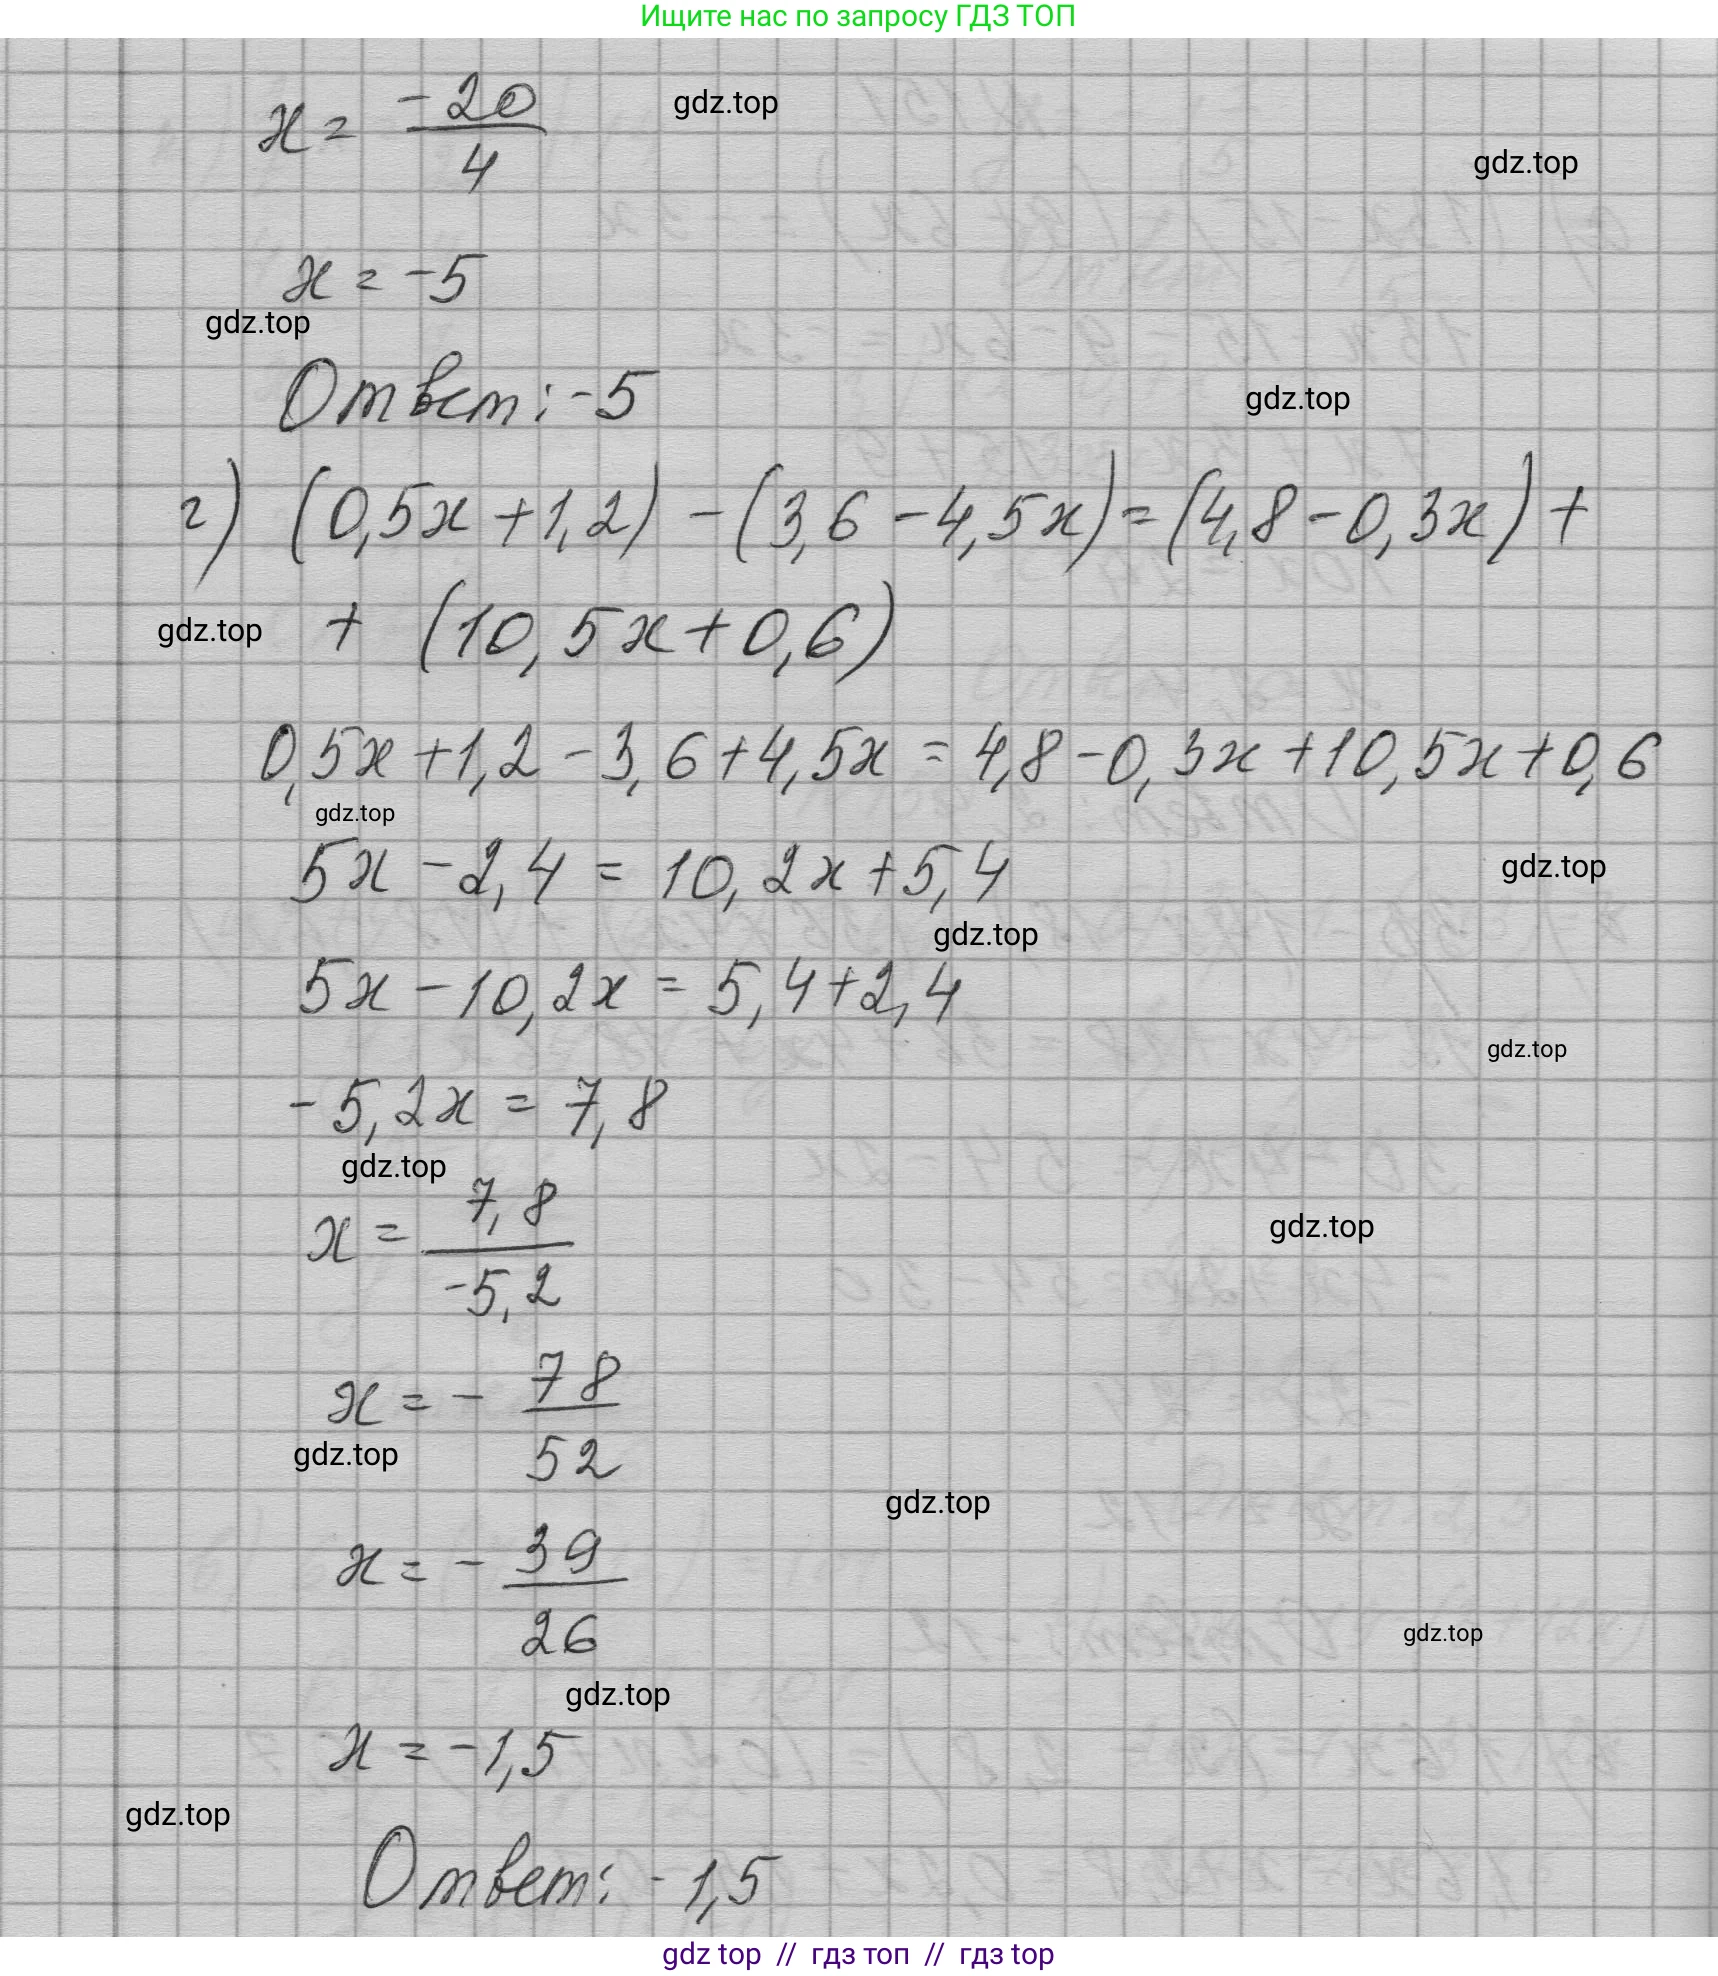 Ищите нас по запросу ГДЗ ТОП
x = -20/4
gdz.top
gdz.top
x = -5
gdz.top
Ответ: -5
gdz.top
г) (0,5x + 1,2) - (3,6 - 4,5x) = (4,8 - 0,3x) +
gdz.top
+ (10,5x + 0,6)
0,5x + 1,2 - 3,6 + 4,5x = 4,8 - 0,3x + 10,5x + 0,6
gdz.top
5x - 2,4 = 10,2x + 5,4
gdz.top
gdz.top
5x - 10,2x = 5,4 + 2,4
gdz.top
-5,2x = 7,8
gdz.top
x = 7,8/-5,2
gdz.top
x = - 78/52
gdz.top
gdz.top
x = - 39/26
gdz.top
gdz.top
x = -1,5
gdz.top
Ответ: -1,5
gdz top // гдз топ // гдз top